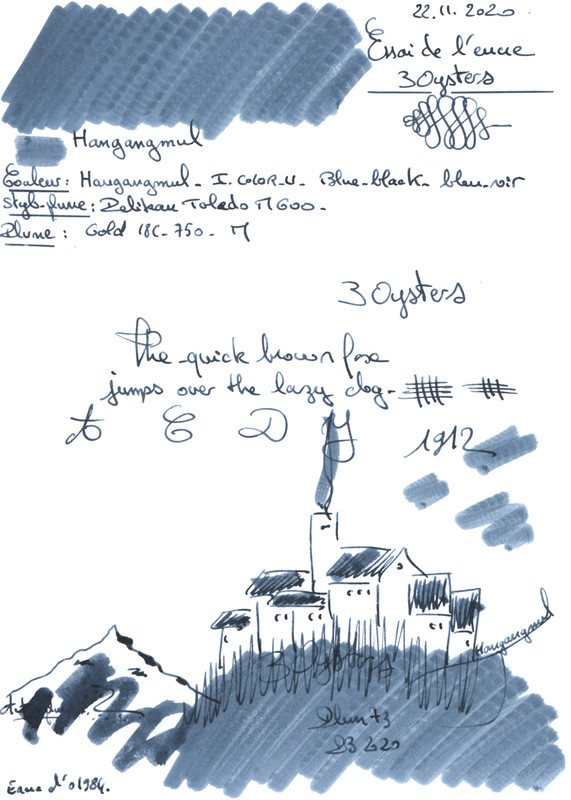 22.11.2020
Essai de l'encre
3 Oysters
Hangangmul
Couleur : Hangangmul - I. COLOR_U - Blue-black - bleu-noir
Stylo-plume : Pelikan Toledo M600 -
Plume : Gold 18C - 750 - M
3 Oysters
The quick brown fox
jumps over the lazy dog -
A C D Y
1912
Hangangmul
3 Oysters
Plum 73
D3 2020
Encre d'01984.